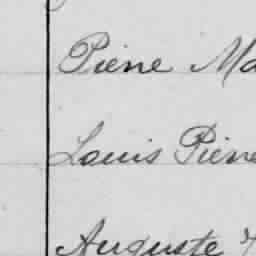 Pierre Ma
Louis Pierre
Auguste